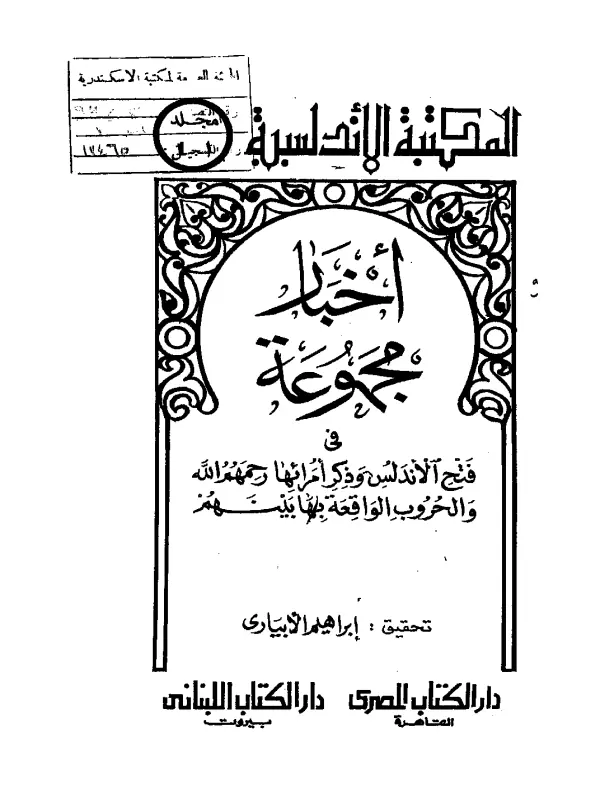 الهيئة العامة لمكتبة الاسكندرية
مجلد
المكتبة الأندلسية
أخبار
مجموعة
فى
فَتْحِ الأندَلُسِ وَذِكرِ أمَرائِها رَحِمَهُمُ اللَّه
وَالحُرُوبِ الوَاقِعَةِ بِهَا بَيْنَهُمْ
تحقيق : إبراهيم الأبيارى
دار الكتاب المصرى دار الكتاب اللبنانى
القاهرة بيروت